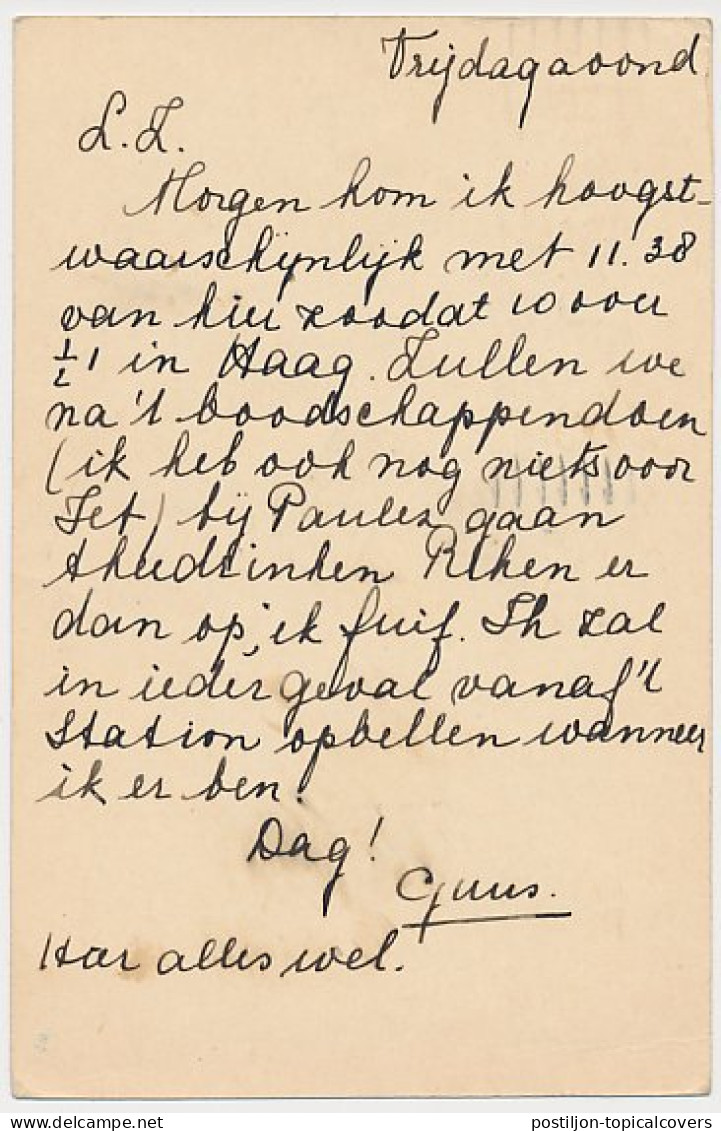 Vrijdagavond
L. Z.
Morgen kom ik hoogst-
waarschijnlijk met 11.38
van hier zoodat 10 over
½ 1 in Haag. Zullen we
na 't boodschappendoen
(ik heb ook nog niets voor
Jet) bij Paulez gaan
theedrinken Reken er
dan op, ik fuif. Ik zal
in ieder geval vanaf 't
Station opbellen wanneer
ik er ben.
Dag!
Guus.
Hier alles wel.
www.delcampe.net
postiljon-topicalcovers